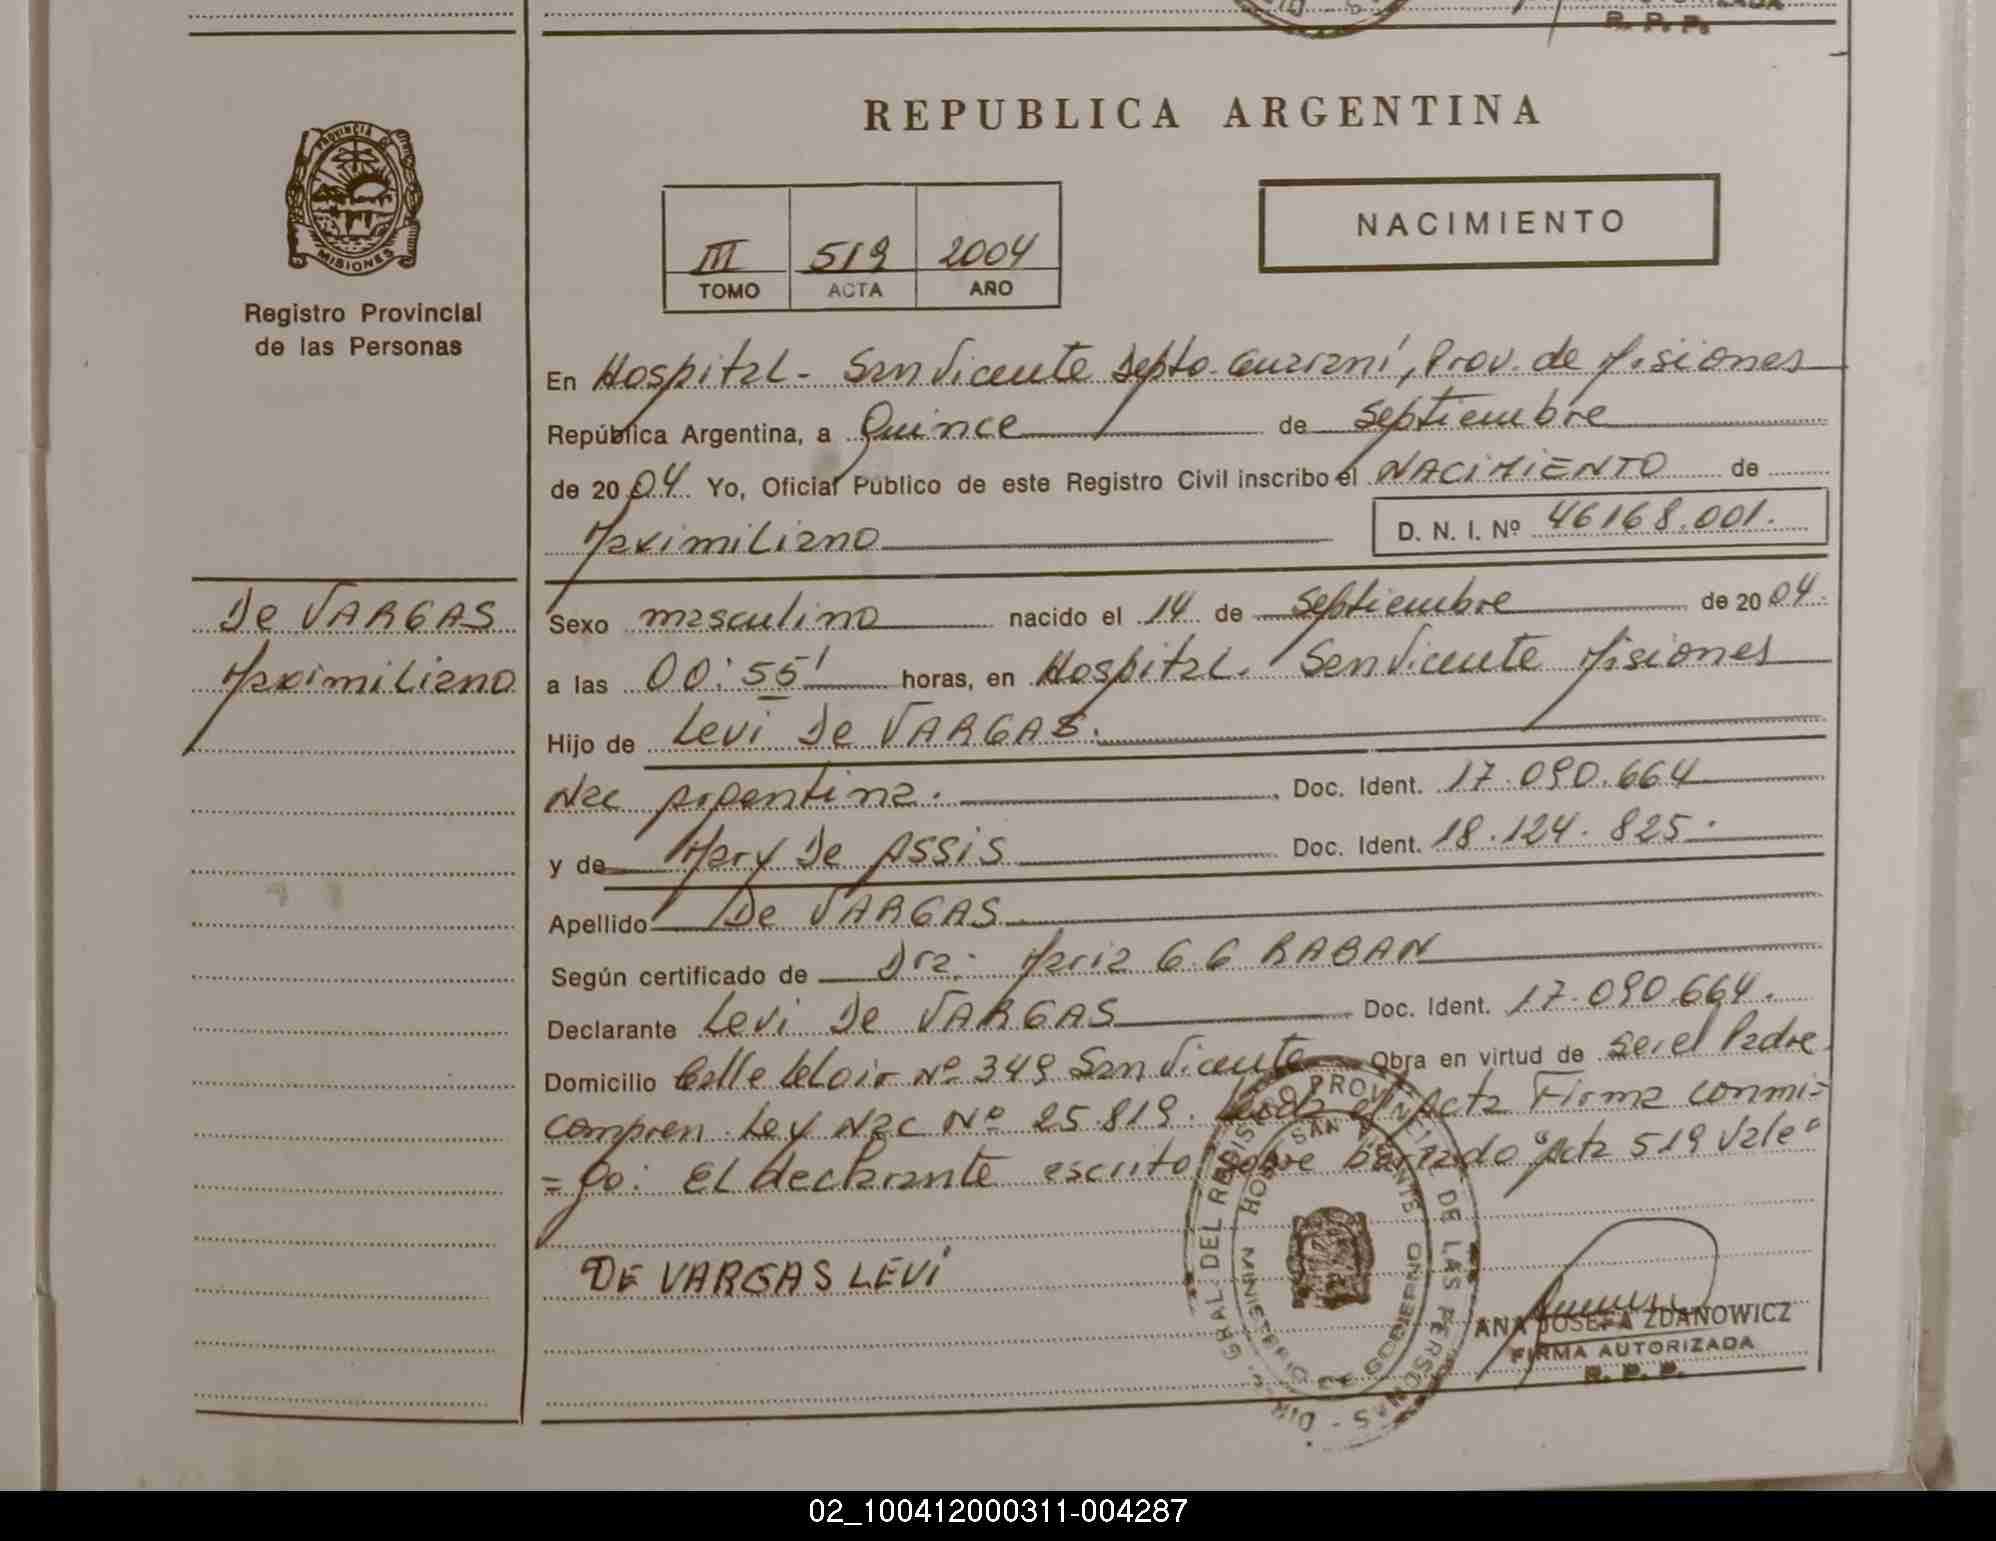 R. P. P.
PROVINCIA DE
MISIONES
Registro Provincial
de las Personas
REPUBLICA ARGENTINA
III 519 2004
TOMO ACTA AÑO
NACIMIENTO
En Hospital - San Vicente Depto. Guaraní, Prov. de Misiones
República Argentina, a Quince de Septiembre
de 20 04 Yo, Oficial Público de este Registro Civil inscribo el NACIMIENTO de
Maximiliano D. N. I. Nº 46168.001.
De VARGAS
Maximiliano
Sexo masculino nacido el 14 de Septiembre de 20 04.
a las 00:55' horas, en Hospital. San Vicente Misiones
Hijo de Levi De VARGAS.
Nac Argentina. Doc. Ident. 17.090.664
y de Mary De Assis Doc. Ident. 18.124.825.
Apellido De VARGAS
Según certificado de Dra. Maria G.G RABAN
Declarante Levi De VARGAS Doc. Ident. 17.090.664.
Domicilio Calle Leloir Nº 349 San Vicente Obra en virtud de ser el Padre
Compren. Ley Nac Nº 25.819. Leida el Acta Firma conmi-
=go: El declarante escrito sobre borrado "Acta 519 Vale"
DE VARGAS LEVI
DIR. GRAL. DEL REGISTRO PROVINCIAL DE LAS PERSONAS
HOSP. SAN VICENTE
MINISTERIO DE GOBIERNO
ANA JOSEFA ZDANOWICZ
FIRMA AUTORIZADA
R. P. P.
02_100412000311-004287